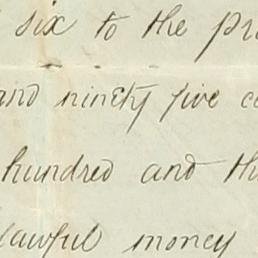 six to the pr
and ninety five c
hundred and th
lawful money